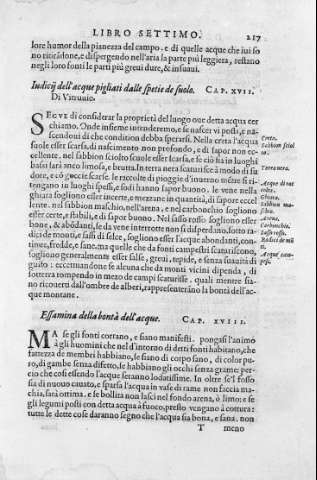 LIBRO SETTIMO. 217
lore humor della pianezza del campo. e di quelle acque che iui so
no ritirādone, e dispergendo nell'aria la parte più leggiera, restano
negli loro fonti le parti più greui dure, & insuaui.
Indicij dell'acque pigliati dalle spetie de suolo. CAP. XVII.
Di Vitruuio.
SEGVE di considerar la proprietà del luogo oue detta acqua cer
chiamo. Onde inseme intenderemo, e se nascer vi posti, e na-
scendoui di che condition debba sperarsi. Nella creta l'acqua
suole esser scarsa, di nascimento non profondo, e di sapor non ec-
cellente. nel sabbion sciolto suole esser scarsa, e se ciò ha in luoghi
bassi sarà anco limosa, e brutta. In terra nera scaturisce à modo di su
dore, e ò goccie scarse. le raccolte di pioggie d'inuerno
tengono in luoghi spessi, e sodi hanno sapor buono. le vene nella
ghiara sogliono esser incerte, e mezane in quantità, di sapor eccel
lente. nel sabbion maschio, nell'arena, e nel carbonchio sogliono
esser certe, e stabili, e di sapor buono. Nel sasso rosso sogliono esser
bone, & abōdanti, se da vene interrotte non si disperdano. sotto ra-
dici de monti, e sassi di selce, sogliono esser l'acque abondanti, con-
tinue, fredde, e sane. ma quelle che da fonti campestri scaturiscono,
sogliono generalmente esser salse, greui, tepide, e senza suauità di
gusto: eccettuandone se alcuna che da monti vicini dipenda, di
sotterra rompendo in mezo de campi scaturisse. quali mentre sia-
no ricouerti dall'ombre de alberi, rappresenteranno la bontà dell'ac-
que montane.
Creta.
Sabbion sciol
to.
Terra nera.
Acque di rac
colte.
Ghiara.
Sabbion ma-
schio.
Arena.
Carbonchio.
Sasso rosso.
Radici de mō
ti.
Acque cam-
Essamina della bontà dell'acque. CAP. XVIII.
MA se gli fonti corrano, e siano manifesti. pongasi l'animo
à gli huomini che nel d'intorno di detti fonti habitano, che
fattezza de membri habbiano, se siano di corpo sano, di color pu-
ro, di gambe senza difetto, se habbiano gli occhi senza grame: per-
cio che cosi essendo l'acque seranno lodatissime. In oltre se'l fosso
sia di nuouo cauato, e sparsa l'acqua in vasi di rame non faccia ma-
chia, sarà ottima. e se bollita non lasci nel fondo arena, ò limo: e se
gli legumi posti con detta acqua à fuoco, presto vengano à cottura:
tutte le dette cose daranno segno che l'acqua sia bona, e sana. non
T meno